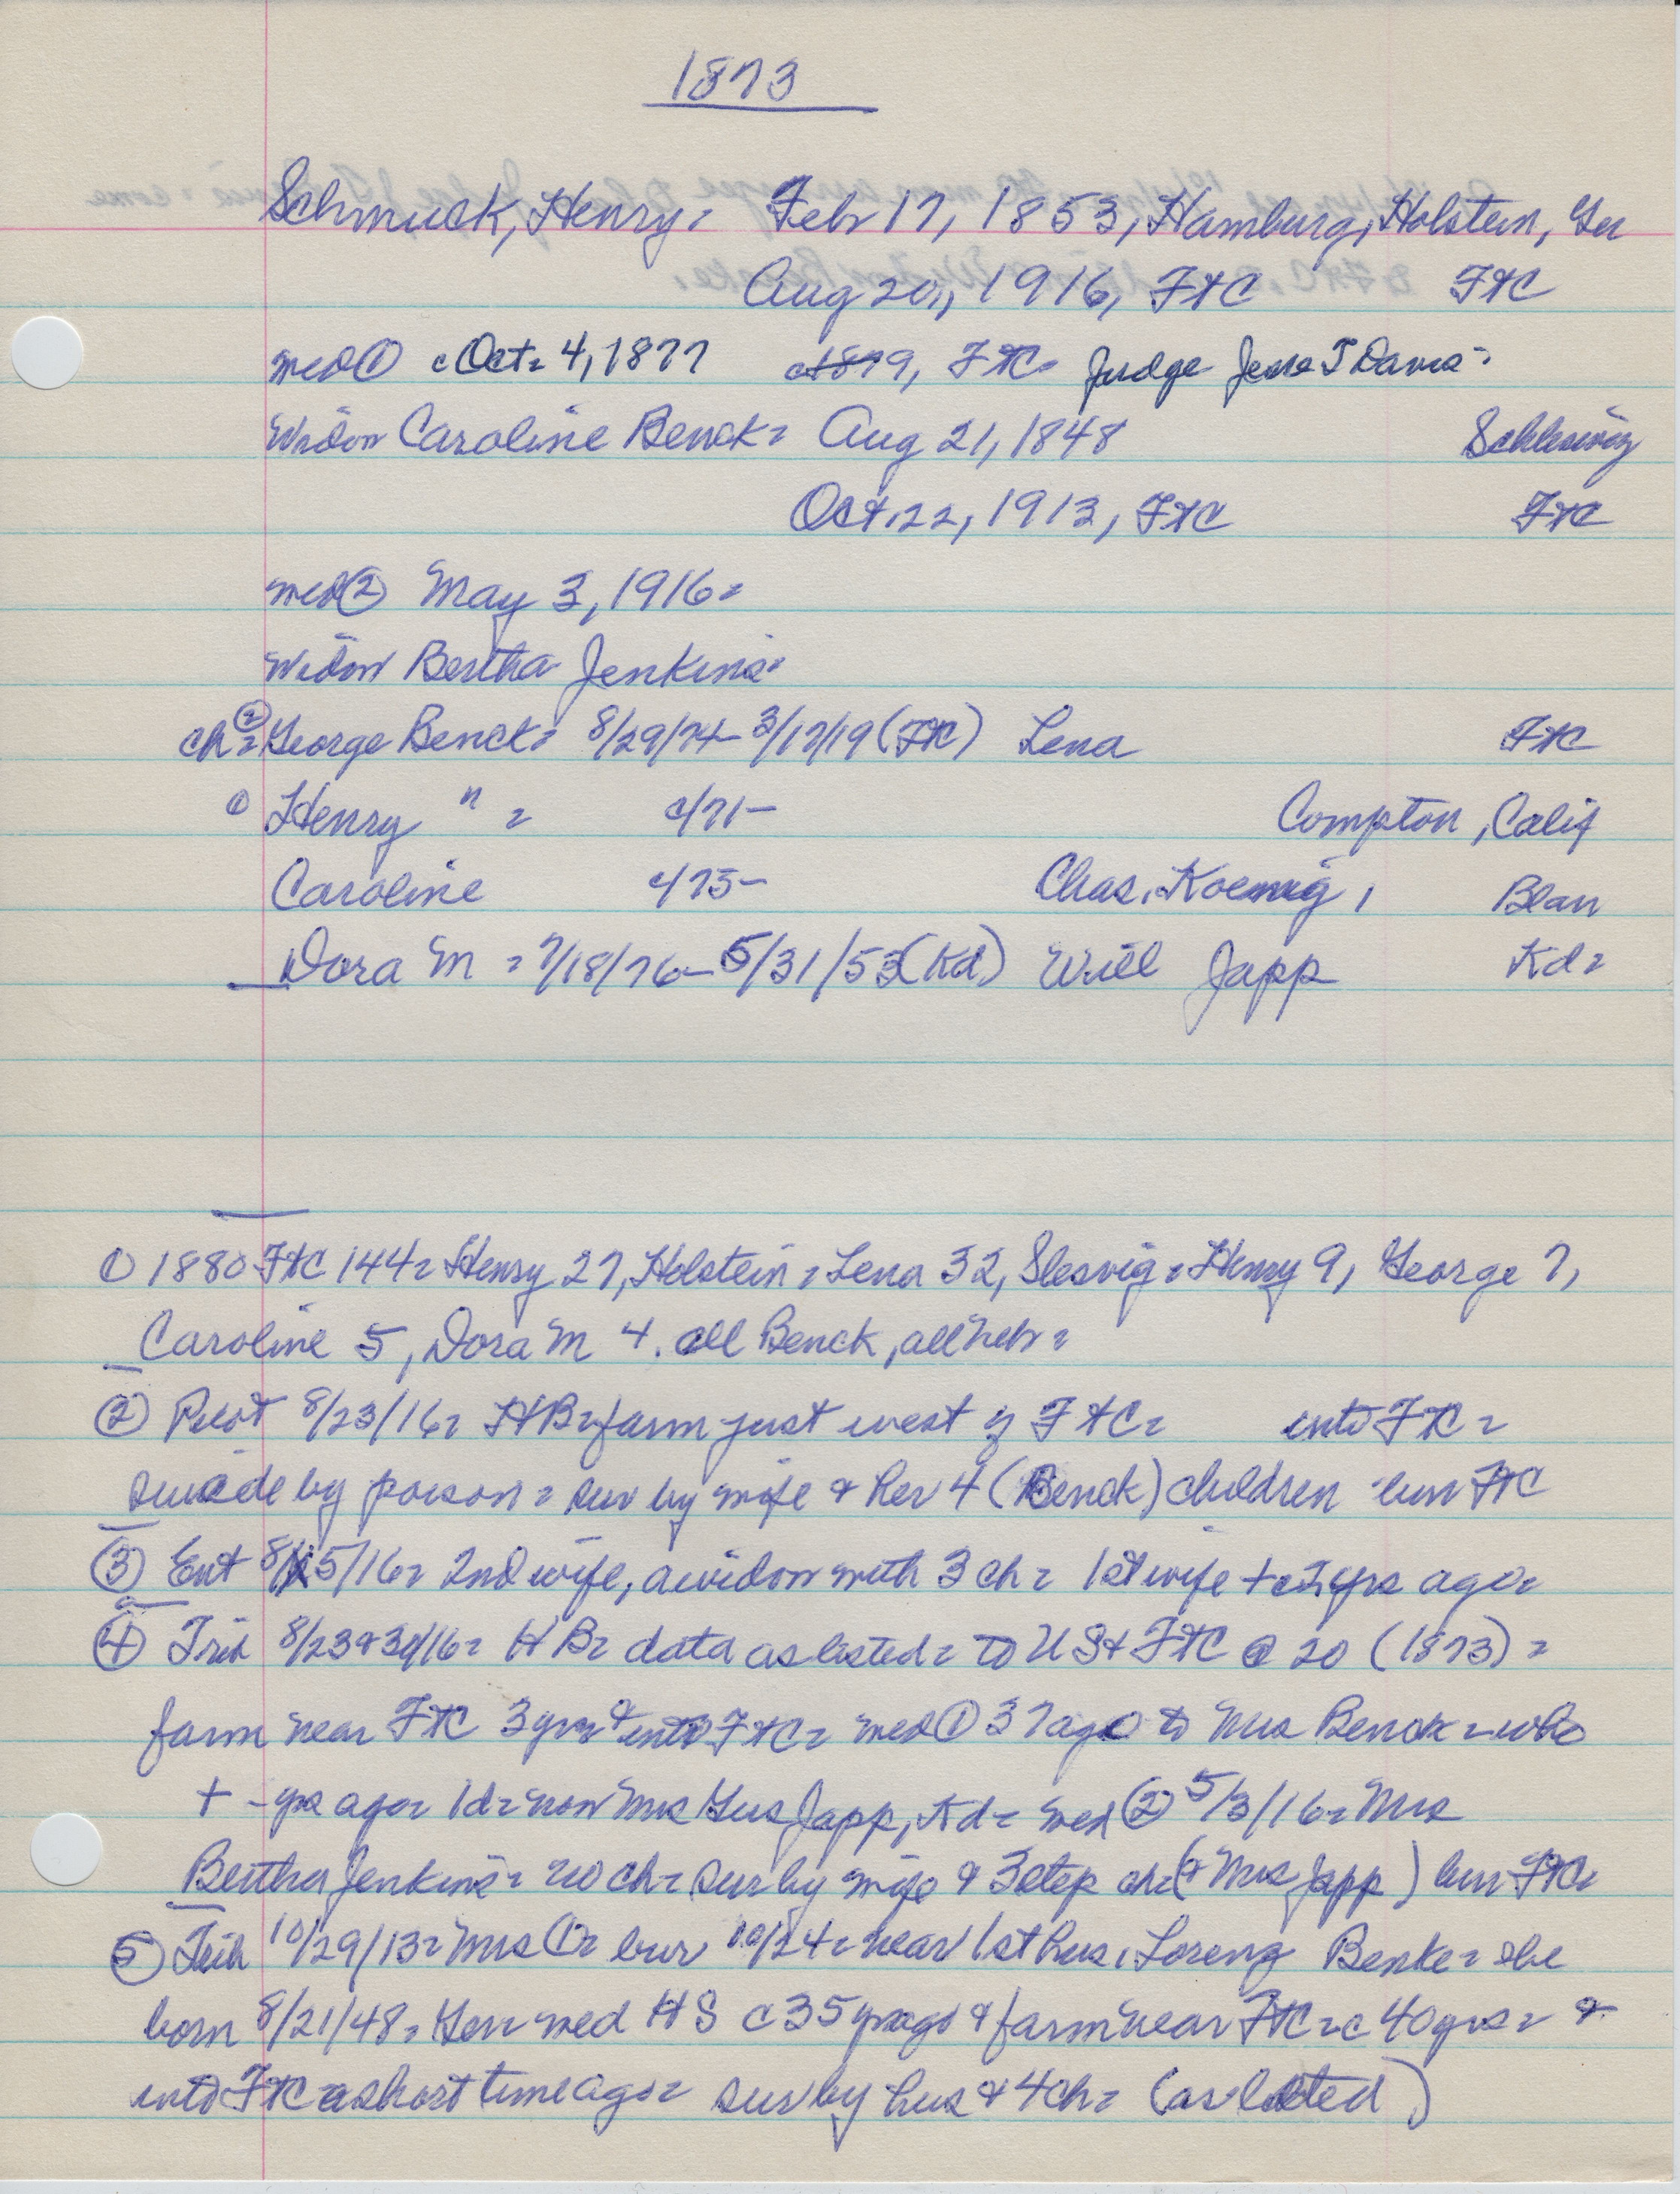 1873
Schmuck, Henry = Feb 17, 1853, Hamburg, Holstein, Ger
Aug 20, 1916, FtC FtC
med ① c Oct 4, 1877 c1879, FtC = Judge Jesse T Davis =
Widow Caroline Benck = Aug 21, 1848 Schleswig
Oct 22, 1913, FtC FtC
med ② May 3, 1916 =
Widow Bertha Jenkins =
ch = ② George Benck = 8/29/74 - 3/17/19 (FtC) Lena FtC
① Henry " = c/71 - Compton, Calif
Caroline c/75 - Chas. Koennig, Blan
Dora M = 7/18/76 - 5/31/53 (Kd) Will Japp Kd =
① 1880 FtC 144 = Henry 27, Holstein = Lena 32, Slesvig = Henry 9, George 7,
Caroline 5, Dora M 4. all Benck, all Nebr =
② Pilot 8/23/16 = HB = farm just west of FtC = into FtC =
suicide by poison = sur by wife & her 4 (Benck) children bur FtC
③ Ent 8/25/16 = 2nd wife, a widow with 3 ch = 1st wife + yrs ago =
④ Trib 8/23 & 30/16 = HB = data as listed = to US & FtC @ 20 (1873) =
farm near FtC 3 yrs & into FtC = med ① 37 ago to Mrs Benck = who
+ - yrs ago = 1 d = now Mrs Gus Japp, Kd = med ② 5/3/16 = Mrs
Bertha Jenkins = no ch = sur by wife & 3 step ch = (& Mrs Japp) bur FtC =
⑤ Trib 10/29/13 = Mrs ① = bur 10/24 = near 1st hus, Lorenz Benke = she
born 8/21/48 = Ger = med HS c 35 yrs ago & farm near FtC = c 40 yrs = &
into FtC a short time ago = sur by hus & 4 ch = (as listed)